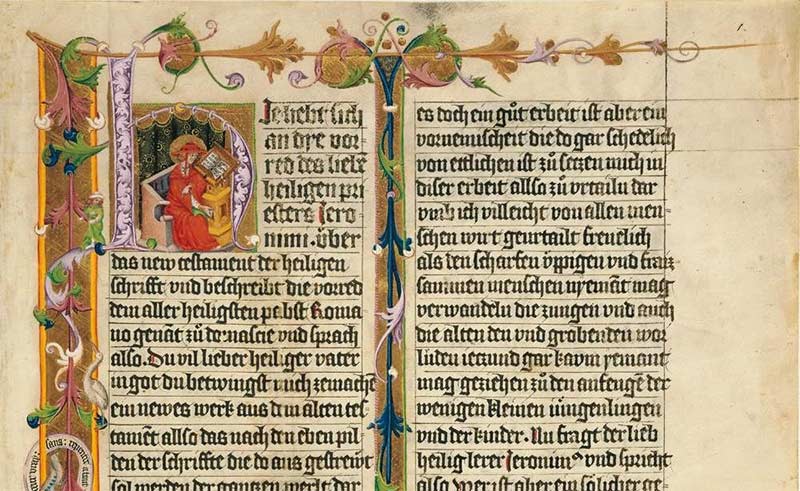 Hie hebt sich
an die vor
red des liebē
heiligen pri
esters Jero
nimi · vber
das new testament der heiligen
schrifft vnd beschreibt die vorred
dem aller heiligsten pabst Roma
no genāt zů damascie vnd sprach
also. Du vil lieber heiliger vater
in got du betwingst mich zemachē
ein newes werk aus dem alten tes
tamēt allso das nach den eben pil
den der schriffte die do aus gestrewt
sol werden der gantzen werlt dar
1.
es doch ein gůt erbeit ist aber ein
vornemischeit die do gar schedelich
von ettlichen ist zů setzen mich in
diser erbeit allso zů vrtailn dar
vmb ich villeicht von allen men
schen wirt geurtailt freuelich
als den scharfen vppigen vnd
sammen menschen nyemant mag
verwandeln die zungen vnd auch
die alten den vnd grobenden wor
ieczund gar kaum yemant
mag geziehen zů den anfengē der
wenigen kleinen iungenlingen
vnd der kinder. Nu fragt der lieb
heilig lerer Jeronimꝰ vnd spricht
also Wer ist aber ein sölicher ge